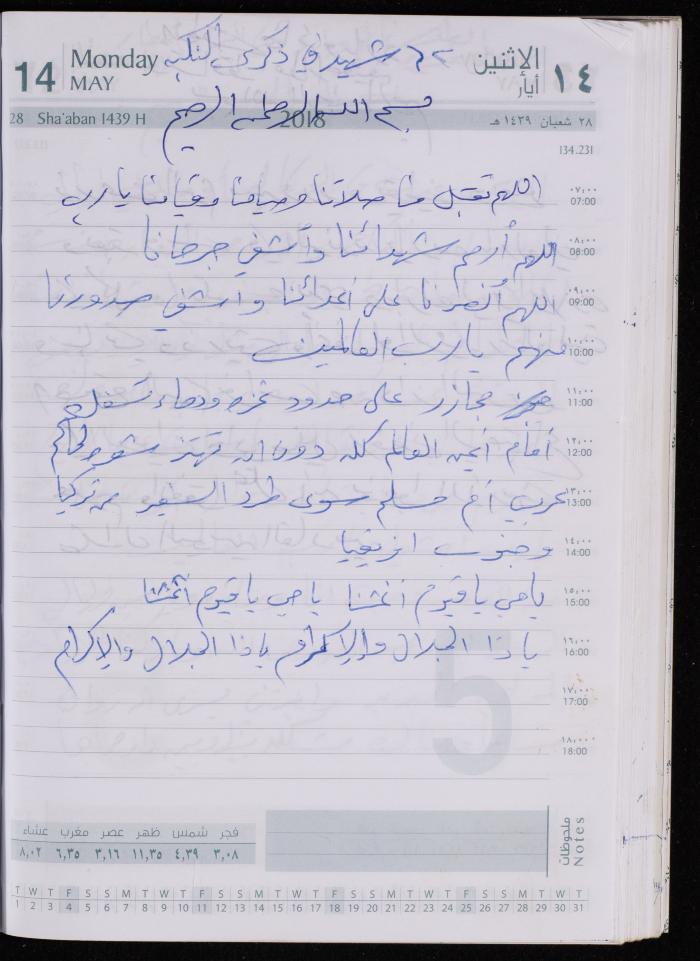 14 Monday MAY
٦٢ شهيد في ذكرى النكبه
الإثنين أيار ١٤
28 Sha'aban 1439 H
2018
٢٨ شعبان ١٤٣٩ هـ
بسم الله الرحمن الرحيم
134.231
٠٧:٠٠ 07:00
اللهم تقبل منا صلاتنا وصيامنا وقيامنا يا رب
٠٨:٠٠ 08:00
اللهم أرحم شهدائنا وأشفي جرحانا
٠٩:٠٠ 09:00
اللهم أنصرنا على أعدائنا وأشفي صدورنا
١٠:٠٠ 10:00
منهم يا رب العالمين
١١:٠٠ 11:00
مجازر على حدود غزه ودماء تسفك
١٢:٠٠ 12:00
أمام أعين العالم كله دون ان تهتز شعره لحاكم
١٣:٠٠ 13:00
عربي أم مسلم سوى طرد السفير من تركيا
١٤:٠٠ 14:00
وجنوب افريقيا
١٥:٠٠ 15:00
يا حي يا قيوم أغثنا يا حي يا قيوم أغثنا
١٦:٠٠ 16:00
يا ذا الجلال والإكرام يا ذا الجلال والإكرام
١٧:٠٠ 17:00
١٨:٠٠ 18:00
5
فجر شمس ظهر عصر مغرب عشاء
٣,٠٨ ٤,٣٩ ١١,٣٥ ٣,١٦ ٦,٣٥ ٨,٠٢
ملحوظات Notes
T W T F S S M T W T F S S M T W T F S S M T W T F S S M T W T
1 2 3 4 5 6 7 8 9 10 11 12 13 14 15 16 17 18 19 20 21 22 23 24 25 26 27 28 29 30 31